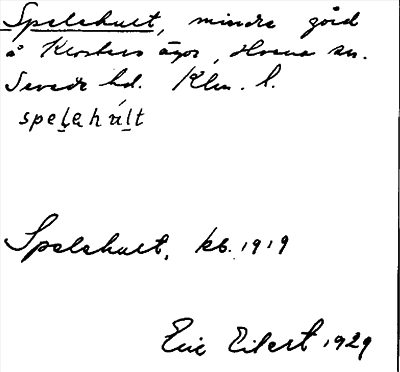 Spelehult, mindre gård
å Klosters ägor, Hvena sn.
Sevede hd. Klm. l.
speḻehúḻt
Spelehult, kb. 1919
Eric Eilert 1929